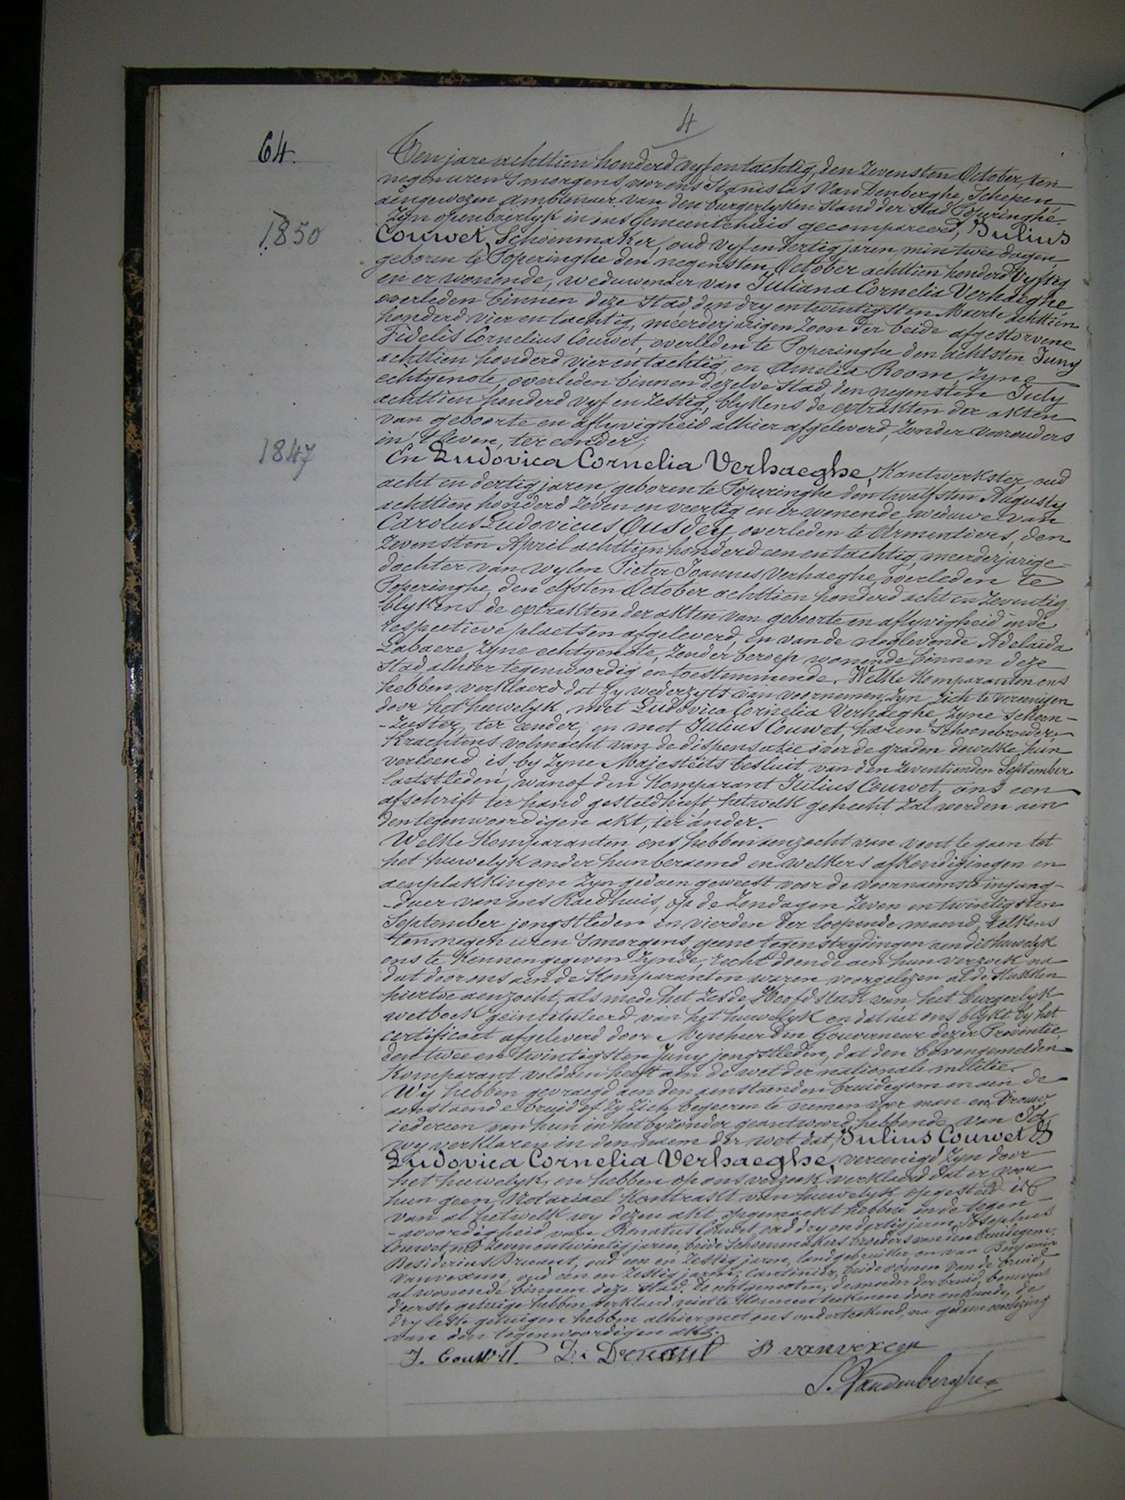 4
64.
1850
1847
Ten jare achttien honderd vyf en tachtig, den zevensten October, ten
negen uren 's morgens, voor ons Stanislas Van Denberghe, Schepen
aengewezen Ambtenaer van den burgerlyken stand der Stad Poperinghe
zyn openbaerlyk in ons Gemeentehuis gecompareerd, Julius
Couwet, Schoenmaker, oud vyf en dertig jaren, min twee dagen
geboren te Poperinghe den negensten October achttien honderd vyftig
en er wonende, weduwenaer van Juliana Cornelia Verhaeghe,
overleden binnen deze Stad, den dry en twintigsten Maerte achttien
honderd vier en tachtig, meerderjarigen zoon der beide afgestorvene
Fidelis Cornelius Couwet, overleden te Poperinghe den achtsten Juny
achttien honderd vier en tachtig, en Amelia Room, zyne
echtgenote, overleden binnen dezelve stad, den negensten July
achttien honderd vyf en zestig, blykens de extrakten der akten
van geboorte en aflyvigheid alhier afgeleverd, zonder voorouders
in 't leven, ter eender,
En Ludovica Cornelia Verhaeghe, Kantwerkster, oud
acht en dertig jaren, geboren te Poperinghe den twalfsten Augusty
achttien honderd zeven en veertig en er wonende, weduwe van
Carolus Ludovicus overleden te Armentiers, den
zevensten April achttien honderd een en tachtig, meerderjarige
dochter van wylen Pieter Joannes Verhaeghe, overleden te
Poperinghe, den elfsten October achttien honderd acht en zeventig
blykens de extrakten der akten van geboorte en aflyvigheid in de
respectieve plaetsen afgeleverd, en van de noglevende Adelaida
Labaere, zyne echtgenote, zonder beroep, wonende binnen deze
stad alhier tegenwoordig en toestemmende. Welke Komparanten ons
hebben verklaerd dat zy wederzyts van voornemen zyn zich te vereenigen
door het huwelyk, met Ludovica Cornelia Verhaeghe, zyne schoon-
-zuster, ter eender, en met Julius Couwet, haren Schoonbroeder,
krachtens volmacht van de dispensatie over de graden dewelke hun
verleend is by Zyne Majesteits besluit van den zeventienden September
laetstleden, wanof den Komparant Julius Couwet, ons een
afschrift ter hand gesteld heeft hetwelk gehecht zal worden aen
den tegenwoordigen akt, ter ander.
Welke Komparanten ons hebben aenzocht van voort te gaen tot
het huwelyk onder hun beraemd en welkers afkondigingen en
aenplakkingen zyn gedaen geweest voor de voornaemste ingang-
-duer van ons Raedhuis, op de Zondagen zeven en twintigsten
September jongstleden en vierden der loopende maend, telkens
ten negen uren 's morgens, geene tegenstrydingen aen dit huwelyk
ons te kennen gegeven zynde, recht doende aen hun verzoek na
dat door ons aen de Komparanten waren voorgelezen al de stukken
hiertoe aenzocht, als mede het zesde Hoofdstuk van het Burgerlyk
wetboek geïntituleerd van het huwelyk en dat uit ons blykt by het
certificaet afgeleverd door Mynheer den Gouverneur dezer Provintie,
den twee en twintigsten Juny jongstleden, dat den bovengemelden
Komparant voldaen heeft aen de wet der nationale militie.
Wy hebben gevraegd aen den aenstaenden bruidegom en aen de
aenstaende bruid of zy zich begeeren te nemen voor man en vrouw
iedereen van hun in het byzonder geantwoord hebbende van Ja,
wy verklaren in den naem der wet dat Julius Couwet &
Ludovica Cornelia Verhaeghe, vereenigd zyn door
het huwelyk, en hebben op ons verzoek verklaerd dat er voor
hun geen Notariael Kontrakt van huwelyk opgesteld is
van al hetwelk wy dezen akt opgemaekt hebben in de tegen-
-woordigheid van Renatus Couwet oud dry en dertig jaren, Josephus
Couwet oud zeven en twintig jaren, beide Schoenmakers broeders van den Bruidegom,
Desiderius oud een en zestig jaren, landgebruiker en van Benjamin
Vanvexem, oud een en zestig jaren, Cantinier, beide oomen van de bruid,
al wonende binnen deze Stad. De echtgenooten, de moeder der bruid, benevens
d'eerste getuige hebben verklaerd niet te kunnen teekenen door onkunde, de
dry leste getuigen hebben alhier met ons onderteekend, na gedaen voorlezing
van den tegenwoordigen akt.
J. Couwet. B vanvexem
S. Vandenberghe